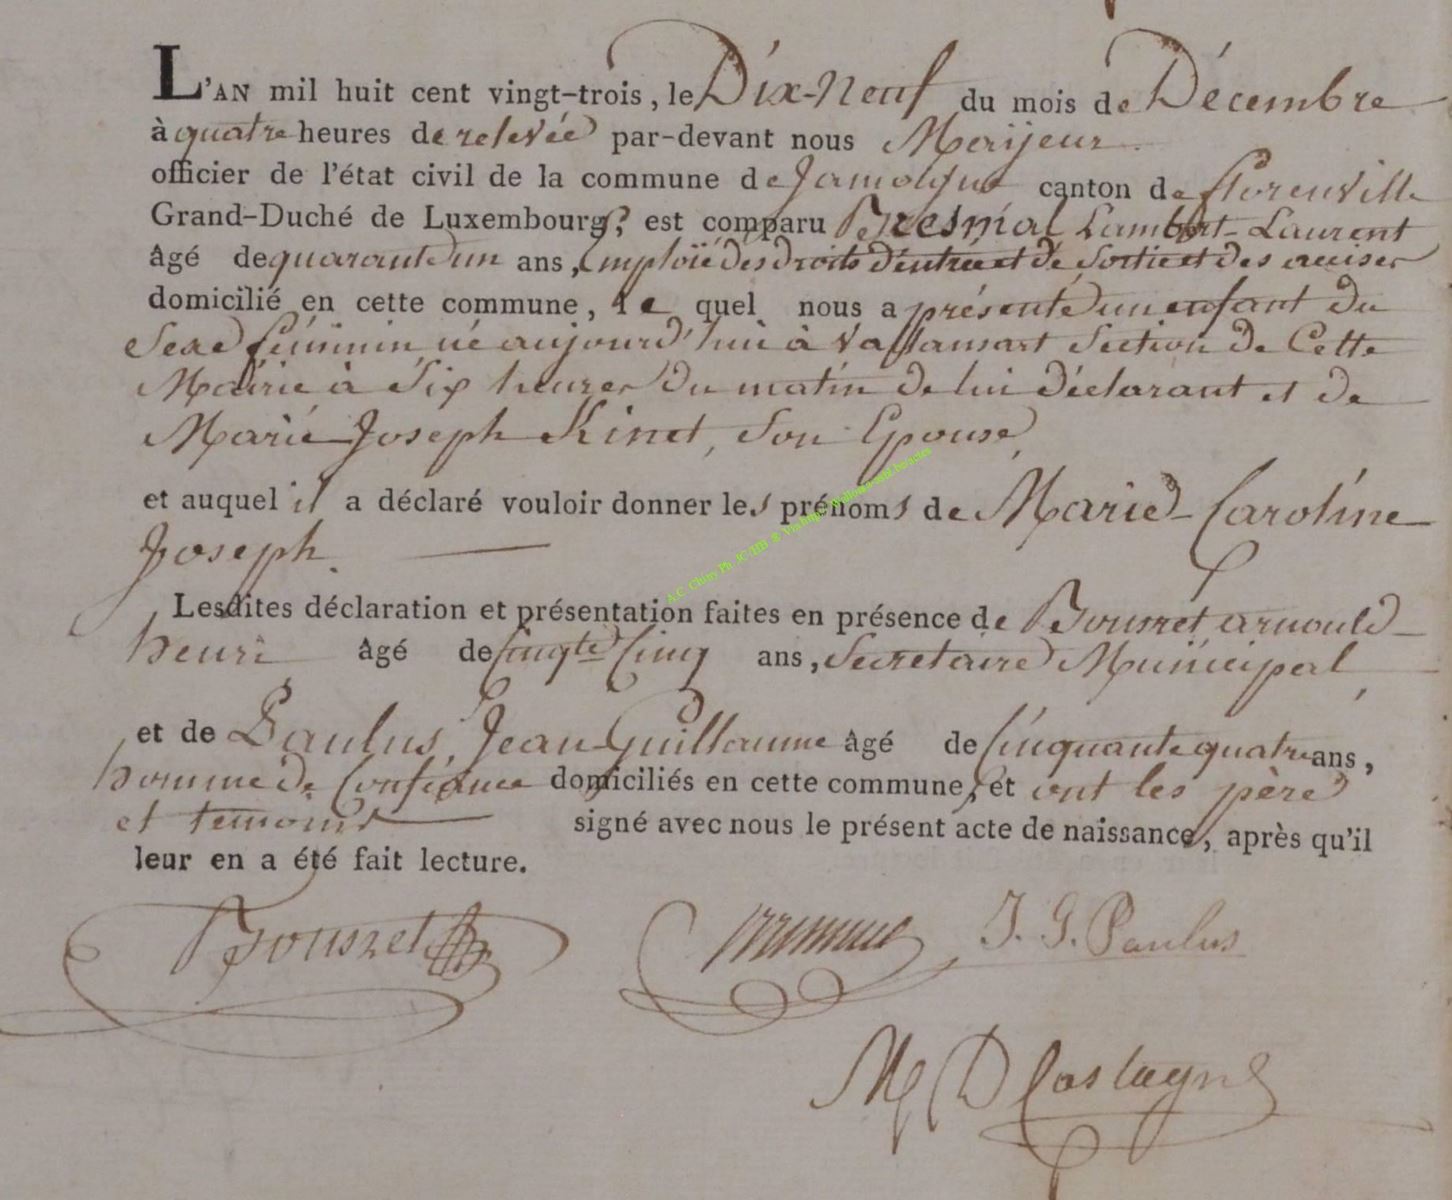 L'AN mil huit cent vingt-trois, le Dix-Neuf du mois de Décembre
à quatre heures de relevée par-devant nous Maijeur
officier de l'état civil de la commune de Jamoigne canton de florenville
Grand-Duché de Luxembourg, est comparu Bresmal Lambert-Laurent
âgé de quarante un ans, Emploié des droits d'entrée et de Sortie et des accises
domicilié en cette commune, le quel nous a présenté un enfant du
Sexe féminin, né aujourd'hui à Valansart Section de Cette
Mairie à Six heures du matin de lui déclarant et de
Marie Joseph Kinet, Son Epouse,
et auquel il a déclaré vouloir donner les prénoms de Marie-Caroline
Joseph.
Lesdites déclaration et présentation faites en présence de arnould
henri âgé de Cinqte Cinq ans, Secretaire Municipal,
et de Paulus, Jean-Guillaume âgé de Cinquante quatre ans,
homme de Confiance domiciliés en cette commune, et ont les père
et temoins signé avec nous le présent acte de naissance, après qu'il
leur en a été fait lecture.
J. G. Paulus
A.C Chiny Ph. JC/HB ©